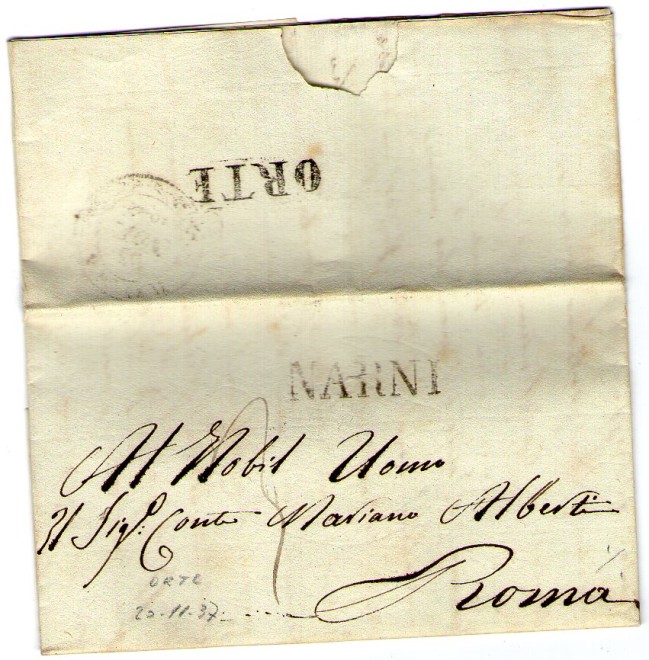 ORTE
NARNI
Al Nobil Uomo
Il Sigr. Conte Mariano Alberti
Roma
ORTE
20-11-37